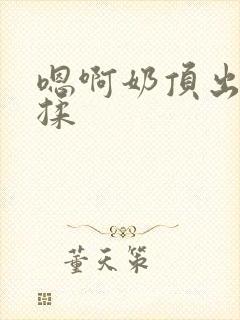 嗯啊奶頂出
揉
董天策